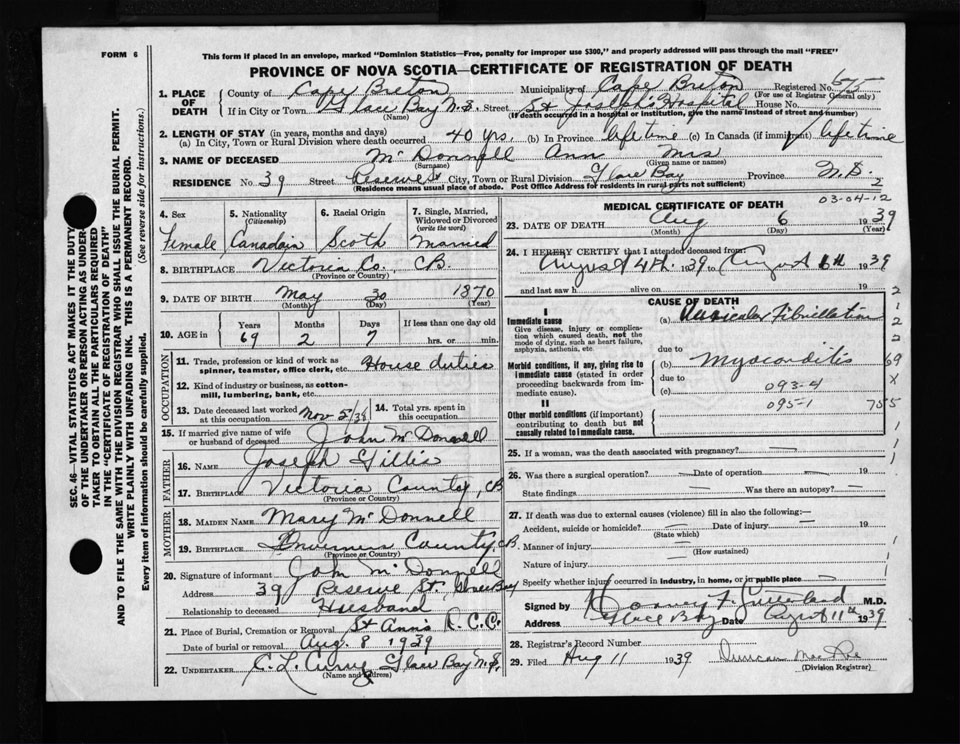 FORM 6
This form if placed in an envelope, marked "Dominion Statistics—Free, penalty for improper use $300," and properly addressed will pass through the mail "FREE"
PROVINCE OF NOVA SCOTIA—CERTIFICATE OF REGISTRATION OF DEATH
SEC. 46—VITAL STATISTICS ACT MAKES IT THE DUTY
OF THE UNDERTAKER OR PERSON ACTING AS UNDER-
TAKER TO OBTAIN ALL THE PARTICULARS REQUIRED
IN THE "CERTIFICATE OF REGISTRATION OF DEATH"
AND TO FILE THE SAME WITH THE DIVISION REGISTRAR WHO SHALL ISSUE THE BURIAL PERMIT.
WRITE PLAINLY WITH UNFADING INK. THIS IS A PERMANENT RECORD.
Every item of information should be carefully supplied. (See reverse side for instructions.)
1. PLACE OF DEATH County of Cape Breton Municipality of Cape Breton Registered No. 675
(For use of Registrar General only)
If in City or Town Glace Bay N.S. Street St Joseph's Hospital House No.
(Name) (If death occurred in a hospital or institution, give the name instead of street and number)
2. LENGTH OF STAY (in years, months and days)
(a) In City, Town or Rural Division where death occurred 40 yrs. (b) In Province lifetime (c) In Canada (if immigrant) lifetime
3. NAME OF DECEASED McDonnell Ann Mrs
(Surname) (Given name or names)
RESIDENCE No. 39 Street Reserve St City, Town or Rural Division Glace Bay Province N.S.
(Residence means usual place of abode. Post Office Address for residents in rural parts not sufficient)
2
4. Sex Female
5. Nationality (Citizenship) Canadain
6. Racial Origin Scoth
7. Single, Married, Widowed or Divorced (write the word) Married
8. BIRTHPLACE Victoria Co., CB.
(Province or Country)
9. DATE OF BIRTH May 30 1870
(Month) (Day) (Year)
10. AGE in Years 69 Months 2 Days 7 If less than one day old hrs. or min.
OCCUPATION
11. Trade, profession or kind of work as spinner, teamster, office clerk, etc. House duties
12. Kind of industry or business, as cotton-mill, lumbering, bank, etc.
13. Date deceased last worked at this occupation Nov 5/38
14. Total yrs. spent in this occupation
15. If married give name of wife or husband of deceased John McDonnell
FATHER
16. NAME Joseph Gillis
17. BIRTHPLACE Victoria County, CB
(Province or Country)
MOTHER
18. MAIDEN NAME Mary McDonnell
19. BIRTHPLACE Inverness County, CB.
(Province or Country)
20. Signature of informant John McDonnell
Address 39 Reserve St. Glace Bay
Relationship to deceased Husband
21. Place of Burial, Cremation or Removal St Ann's R.C.C.
Date of burial or removal Aug. 8 1939
22. UNDERTAKER C. L. Curry Glace Bay N.S.
(Name and Address)
MEDICAL CERTIFICATE OF DEATH
03-04-12
23. DATE OF DEATH Aug 6 1939
(Month) (Day) (Year)
24. I HEREBY CERTIFY that I attended deceased from
August 4th 1939 to August 6th 1939
and last saw h alive on 19
CAUSE OF DEATH
I
Immediate cause (a) Auricular Fibrillation
Give disease, injury or complication which caused death, not the mode of dying, such as heart failure, asphyxia, asthenia, etc.
due to
Morbid conditions, if any, giving rise to immediate cause (stated in order proceeding backwards from immediate cause). (b) Myocarditis
due to
(c) 093-4
II
095-1
Other morbid conditions (if important) contributing to death but not causally related to immediate cause.
69
X
25. If a woman, was the death associated with pregnancy? —
26. Was there a surgical operation? — Date of operation — 19
State findings Was there an autopsy? —
27. If death was due to external causes (violence) fill in also the following:—
Accident, suicide or homicide? — Date of injury — 19
(State which)
Manner of injury —
(How sustained)
Nature of injury —
Specify whether injury occurred in industry, in home, or in public place —
Signed by Sutherland M.D.
Address Glace Bay Date August 11th 1939
28. Registrar's Record Number
29. Filed Aug 11 1939 Duncan
(Division Registrar)